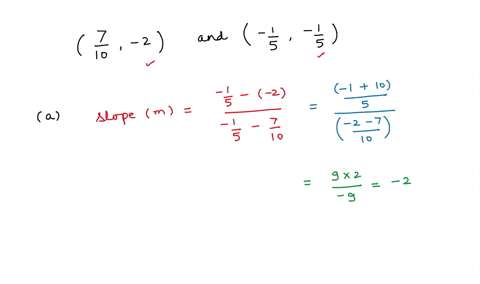 (7/10, -2) and (-1/5, -1/5)
(a) slope (m) = (-1/5 - (-2))/(-1/5 - 7/10) = ((-1 + 10)/5)/((-2 - 7)/10)
= (9 × 2)/(-9) = -2